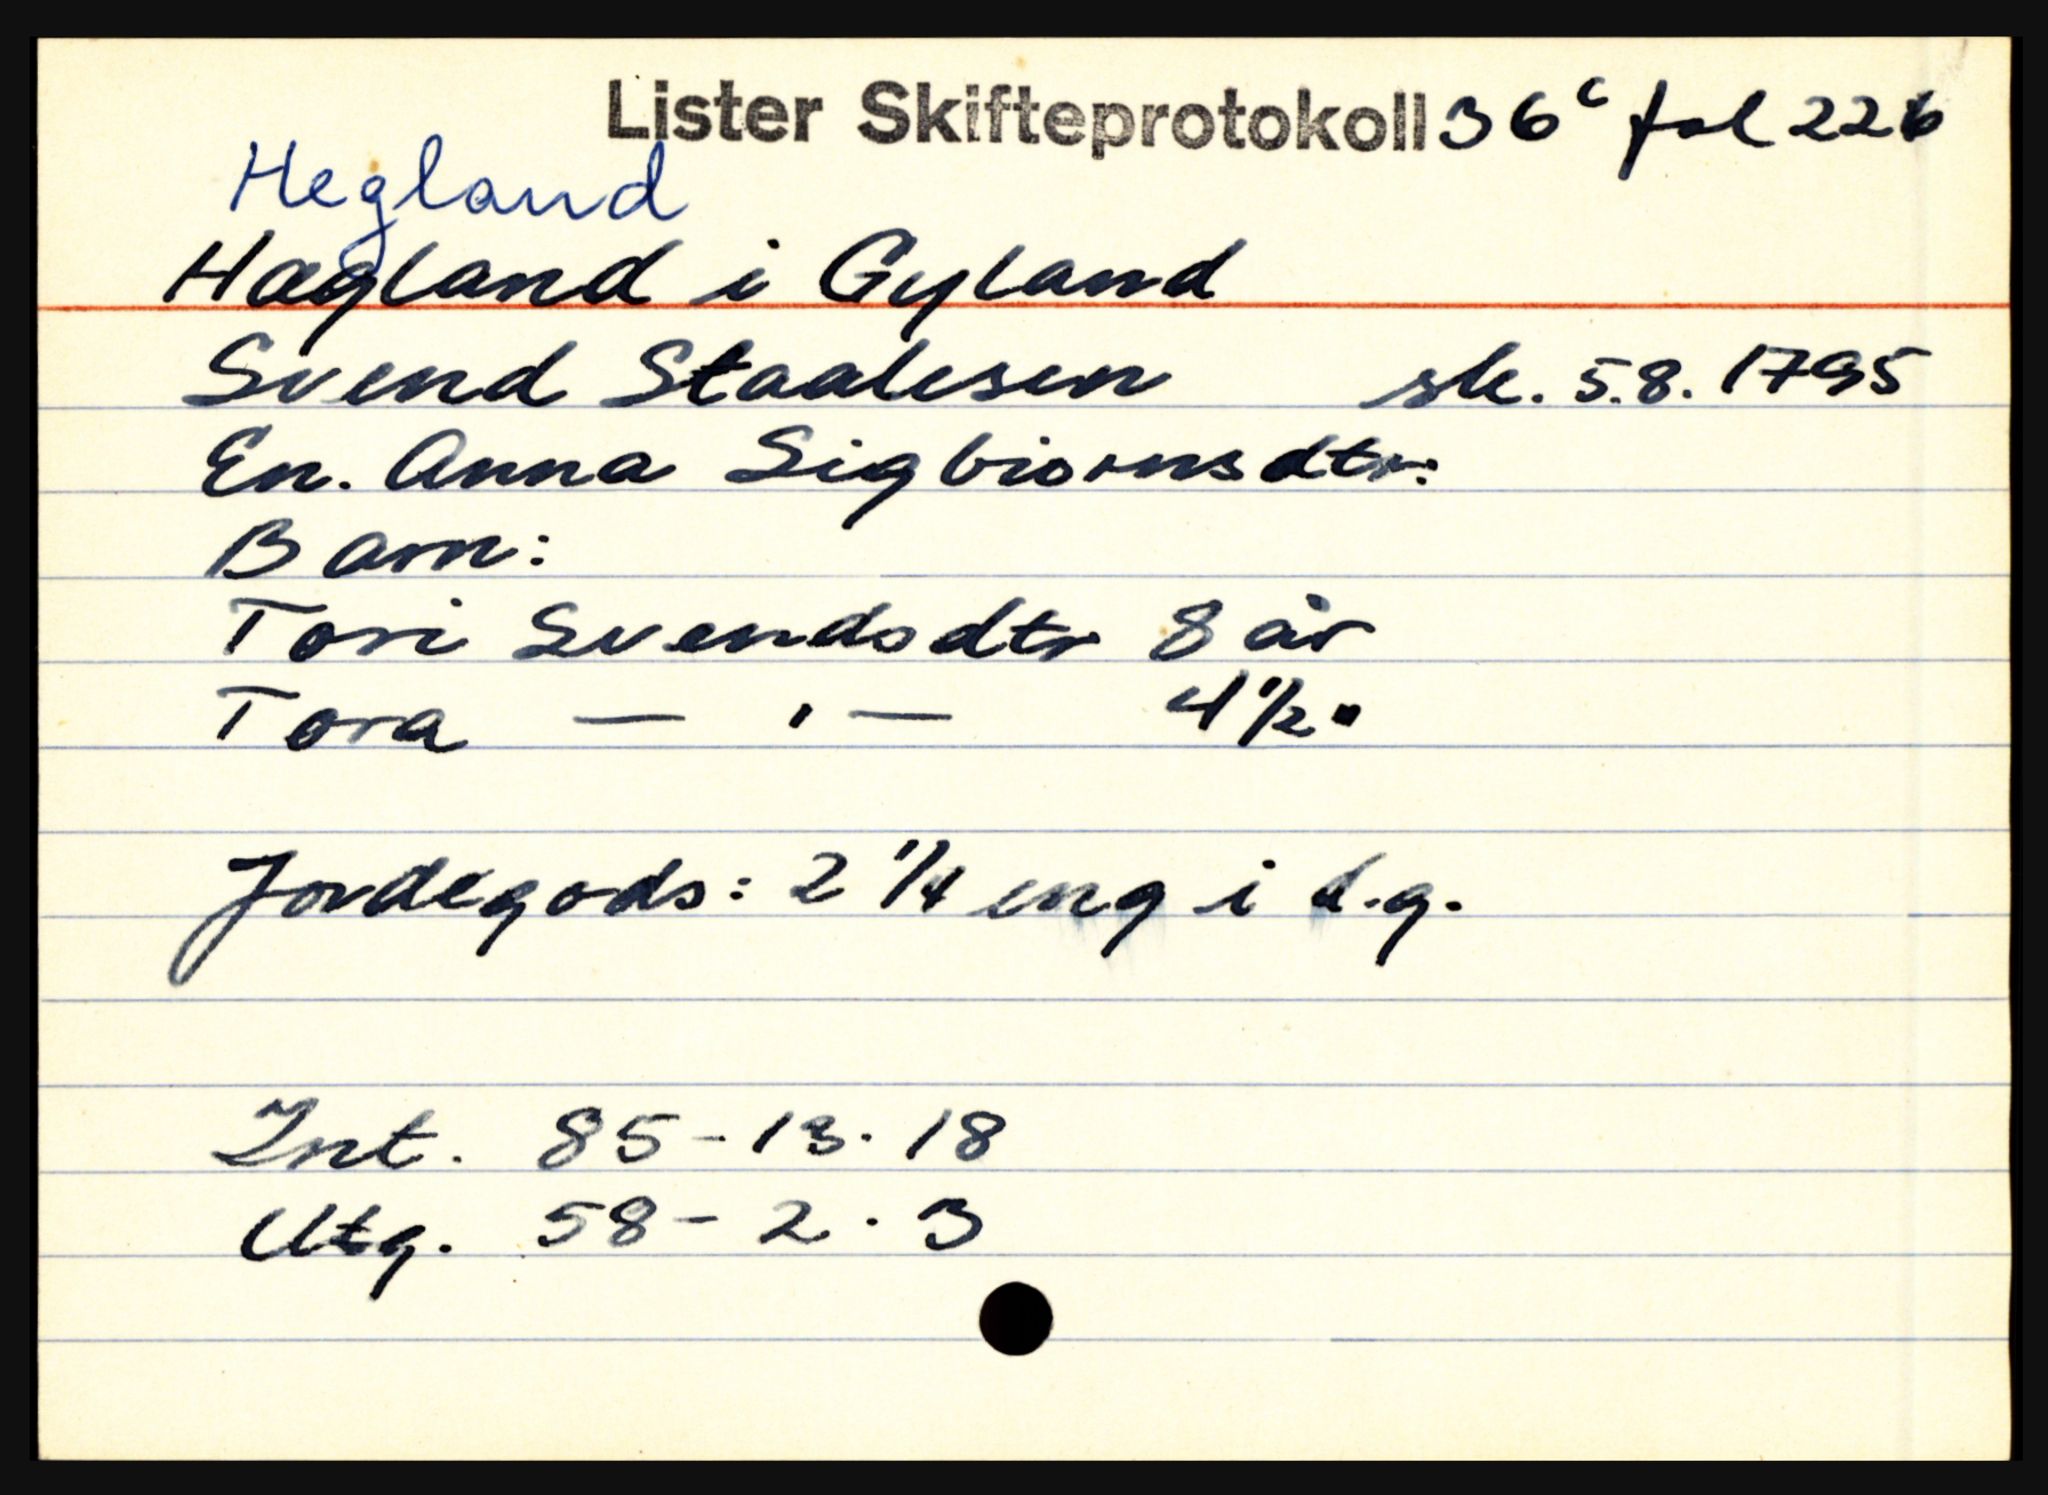 Lister Skifteprotokoll 36c fol 226
Hegland
Hægland i Gyland
Svend Staalesen sk. 5.8. 1795
En. Anna Sigbiornsdtr.
Barn:
Tori Svendsdtr 8 år
Tora — ' — 4 1/2 "
Jordegods: 2 1/4 eng i d.g.
Int. 85 - 13 . 18
Utg. 58 - 2 . 3